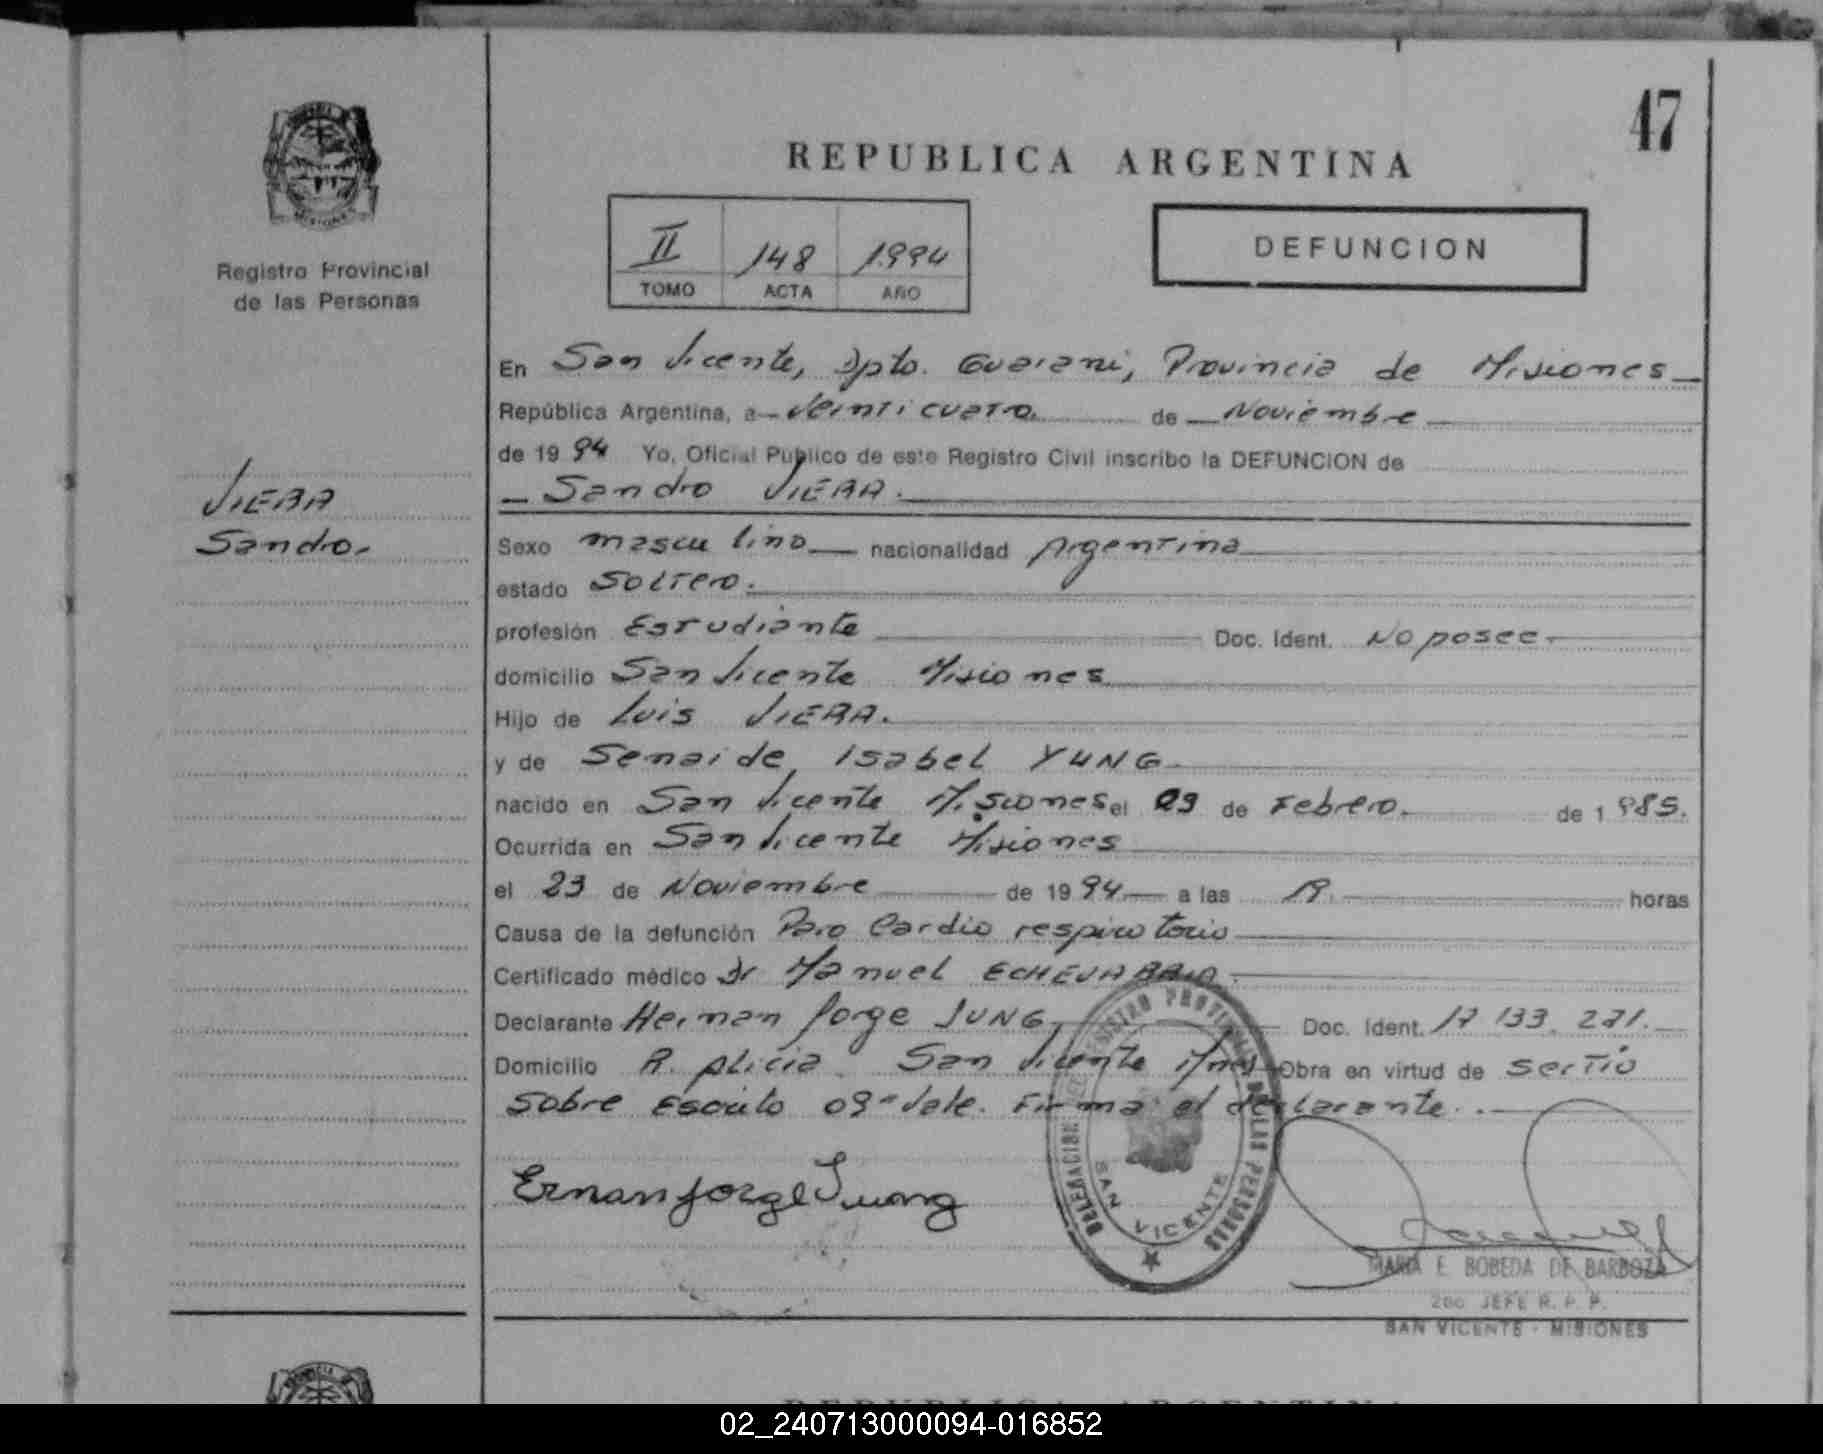 47
REPUBLICA ARGENTINA
II 148 1994
TOMO ACTA AÑO
DEFUNCION
Registro Provincial
de las Personas
VIERA
Sandro.
En San Vicente, Dpto. Guarani, Provincia de Misiones
República Argentina, a veinticuatro de Noviembre
de 1994 Yo, Oficial Público de este Registro Civil inscribo la DEFUNCION de
Sandro VIERA.
Sexo masculino nacionalidad Argentina
estado soltero.
profesión Estudiante Doc. Ident. No posee.
domicilio San Vicente Misiones
Hijo de Luis VIERA.
y de Senaide Isabel YUNG
nacido en San Vicente Misiones el 09 de Febrero. de 1985.
Ocurrida en San Vicente Misiones
el 23 de Noviembre de 1994 a las 19. horas
Causa de la defunción Paro Cardio respiratorio
Certificado médico Dr Manuel ECHEVARRIA.
Declarante Hernan Jorge JUNG, Doc. Ident. 17 133. 271.
Domicilio R. Alicia. San Vicente Mnes Obra en virtud de ser Tio
Sobre Escrito 09 - Vale. Firma el declarante..
Ernan Jorge Iuong
DELEGACION DEL REGISTRO PROVINCIAL DE LAS PERSONAS
SAN VICENTE
MARIA E. BOBEDA DE BARBOZA
2do JEFE R. P. P.
SAN VICENTE - MISIONES
REPUBLICA ARGENTINA
02_240713000094-016852